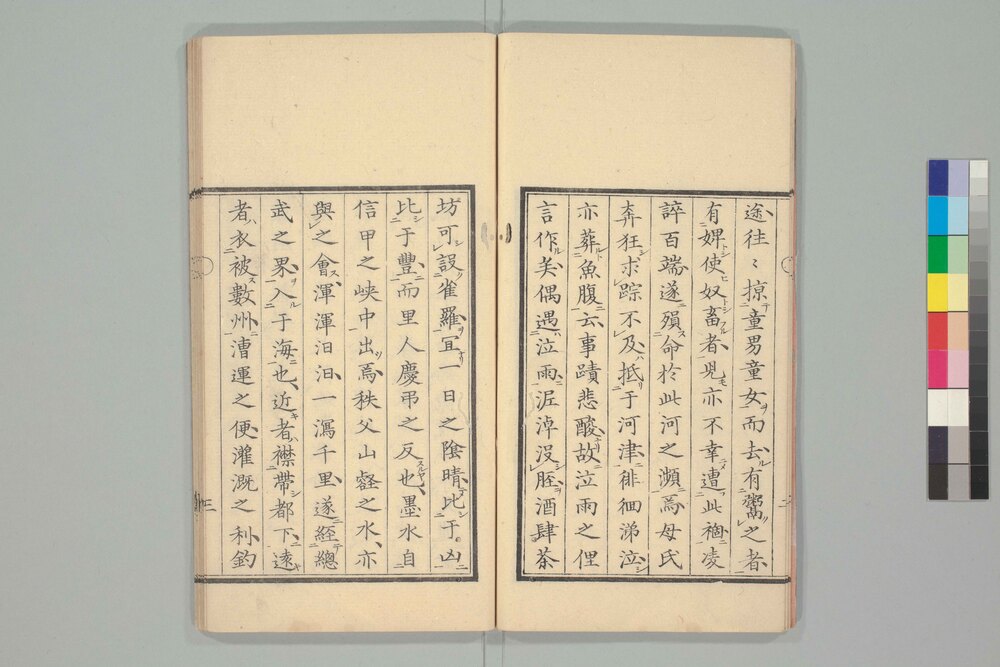 途往〻掠童男童女而去有鬻之者
有婢使奴畜者児亦不幸遭此禍凌
誶百端遂殞命於此河之瀕焉母氏
奔狂求踪不及抵于河津徘徊涕泣
亦葬魚腹云事蹟悲酸故泣雨之俚
言作矣偶遇泣雨泥淖没脛酒肆茶
坊可設雀羅冝一日之陰晴比于凶
比于豐而里人慶弔之反也墨水自
信甲之峡中出焉秩父山谿之水亦
與之會渾渾汩汩一瀉千里遂經總
武之界入于海也近者襟帶都下遠
者衣被數州漕運之便灌溉之利釣